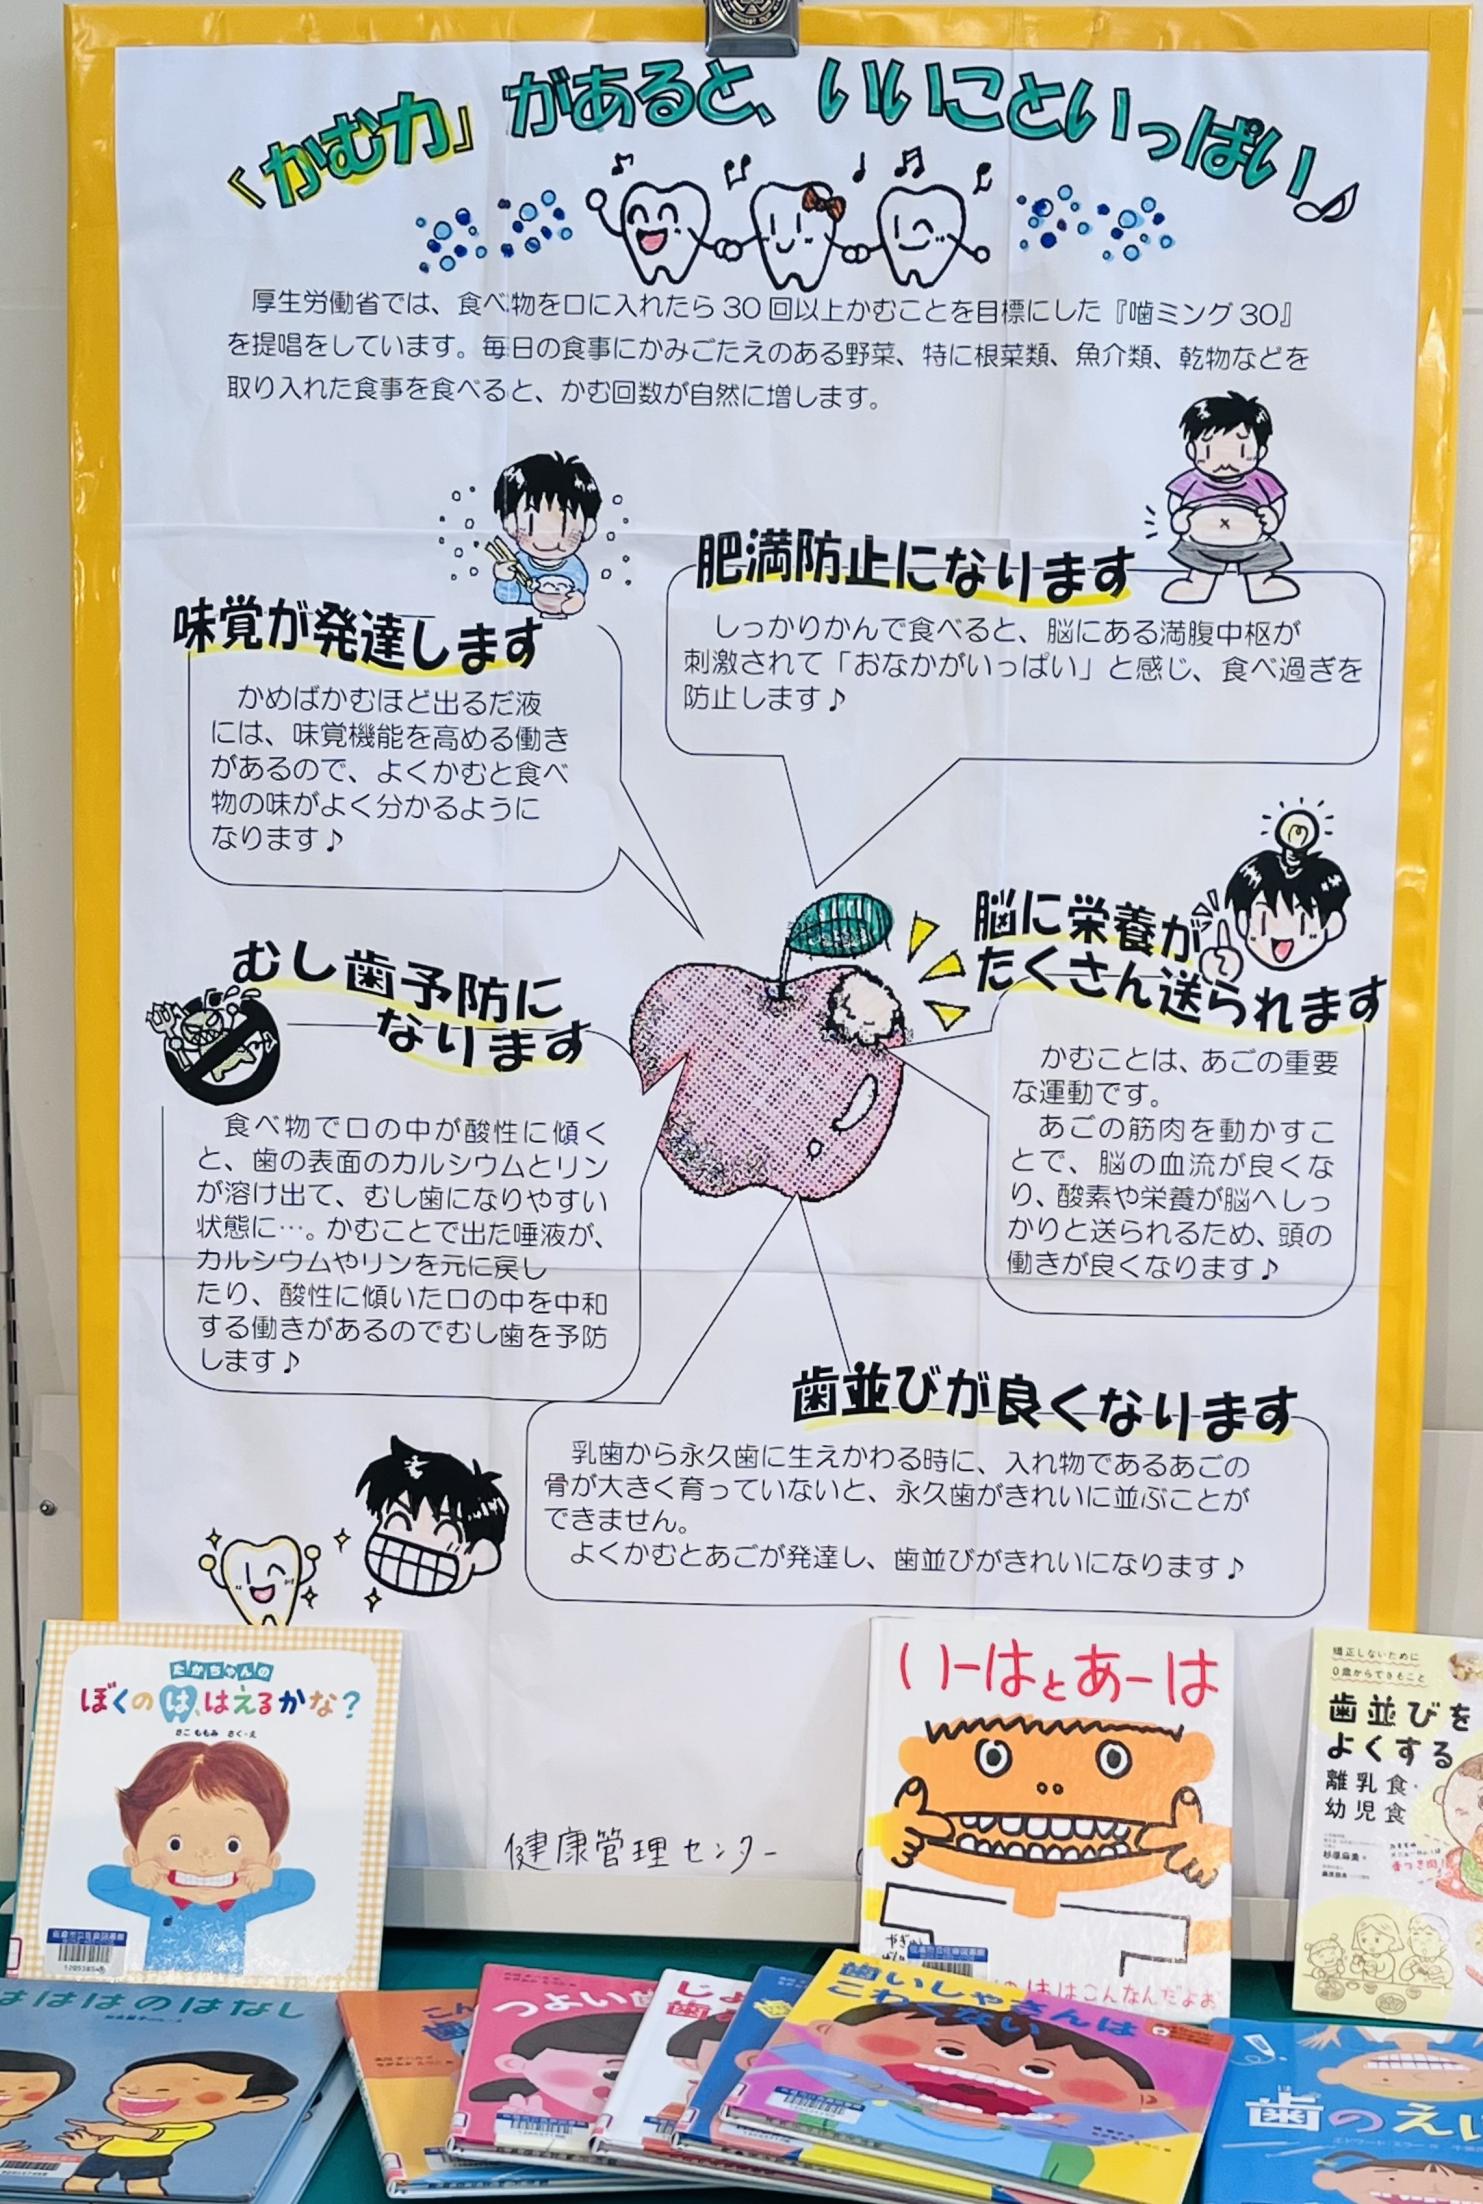 『かむ力』があると、いいこといっぱい♪
厚生労働省では、食べ物を口に入れたら30回以上かむことを目標にした『噛ミング30』
を提唱をしています。毎日の食事にかみごたえのある野菜、特に根菜類、魚介類、乾物などを
取り入れた食事を食べると、かむ回数が自然に増します。
肥満防止になります
しっかりかんで食べると、脳にある満腹中枢が
刺激されて「おなかがいっぱい」と感じ、食べ過ぎを
防止します♪
味覚が発達します
かめばかむほど出るだ液
には、味覚機能を高める働き
があるので、よくかむと食べ
物の味がよく分かるように
なります♪
脳に栄養が
たくさん送られます
かむことは、あごの重要
な運動です。
あごの筋肉を動かすこ
とで、脳の血流が良くな
り、酸素や栄養が脳へしっ
かりと送られるため、頭の
働きが良くなります♪
むし歯予防に
なります
食べ物で口の中が酸性に傾く
と、歯の表面のカルシウムとリン
が溶け出て、むし歯になりやすい
状態に…。かむことで出た唾液が、
カルシウムやリンを元に戻し
たり、酸性に傾いた口の中を中和
する働きがあるのでむし歯を予防
します♪
歯並びが良くなります
乳歯から永久歯に生えかわる時に、入れ物であるあごの
骨が大きく育っていないと、永久歯がきれいに並ぶことが
できません。
よくかむとあごが発達し、歯並びがきれいになります♪
健康管理センター
たかちゃんの
ぼくのは、はえるかな?
さこ ももみ さく・え
いーはとあーは
はこんなんだよぉ
矯正しないために
0歳からできること
歯並びを
よくする
離乳食・
幼児食
はははのはなし
つよい
歯いしゃさんは
こわくない
歯のえ